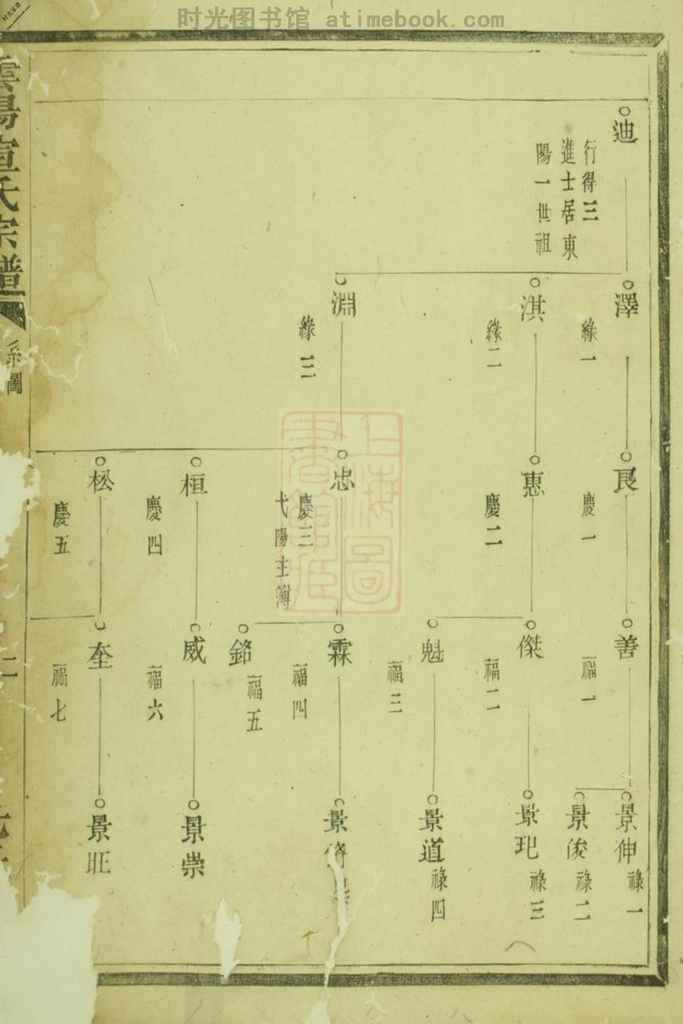 时光图书馆 atimebook.com
迪
行得三
進士居東
陽一世祖
澤
緣一
淇
緣二
淵
緣三
艮
慶一
惠
慶二
忠
慶三
弋陽主簿
桓
慶四
松
慶五
善
福一
傑
福二
魁
福三
霖
福四
銘
福五
威
福六
奎
福七
景伸
祿一
景俊
祿二
景玘
祿三
景道
祿四
景
景崇
景旺
陽宣氏宗譜
系圖
二
上海圖
書館藏